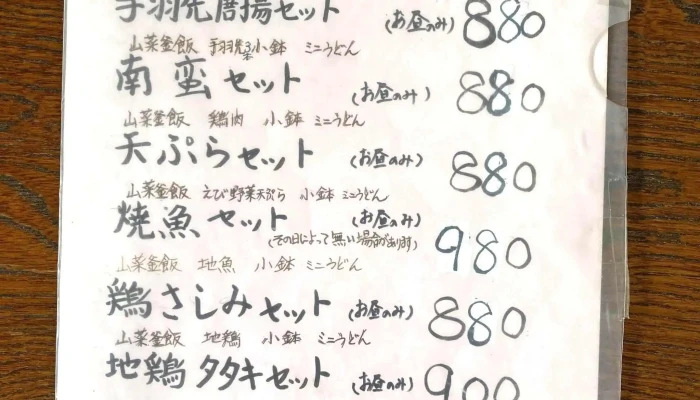 手羽先唐揚セット (お昼のみ) 880
山菜釜飯 手羽先3本 小鉢 ミニうどん
南蛮セット (お昼のみ) 880
山菜釜飯 鶏肉 小鉢 ミニうどん
天ぷらセット (お昼のみ) 880
山菜釜飯 えび野菜天ぷら 小鉢 ミニうどん
焼魚セット (お昼のみ) 980
(その日によって無い場合があります)
山菜釜飯 地魚 小鉢 ミニうどん
鶏さしみセット (お昼のみ) 880
山菜釜飯 地鶏 小鉢 ミニうどん
地鶏タタキセット (お昼のみ) 900